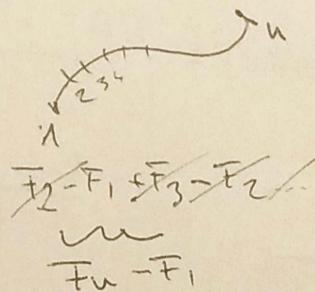 n
2 3 4
1
F̅2 - F̅1 + F̅3 - F̅2 ...
F̅n - F̅1